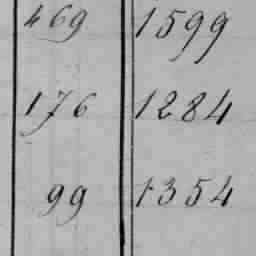 469 1599
176 1284
99 1354